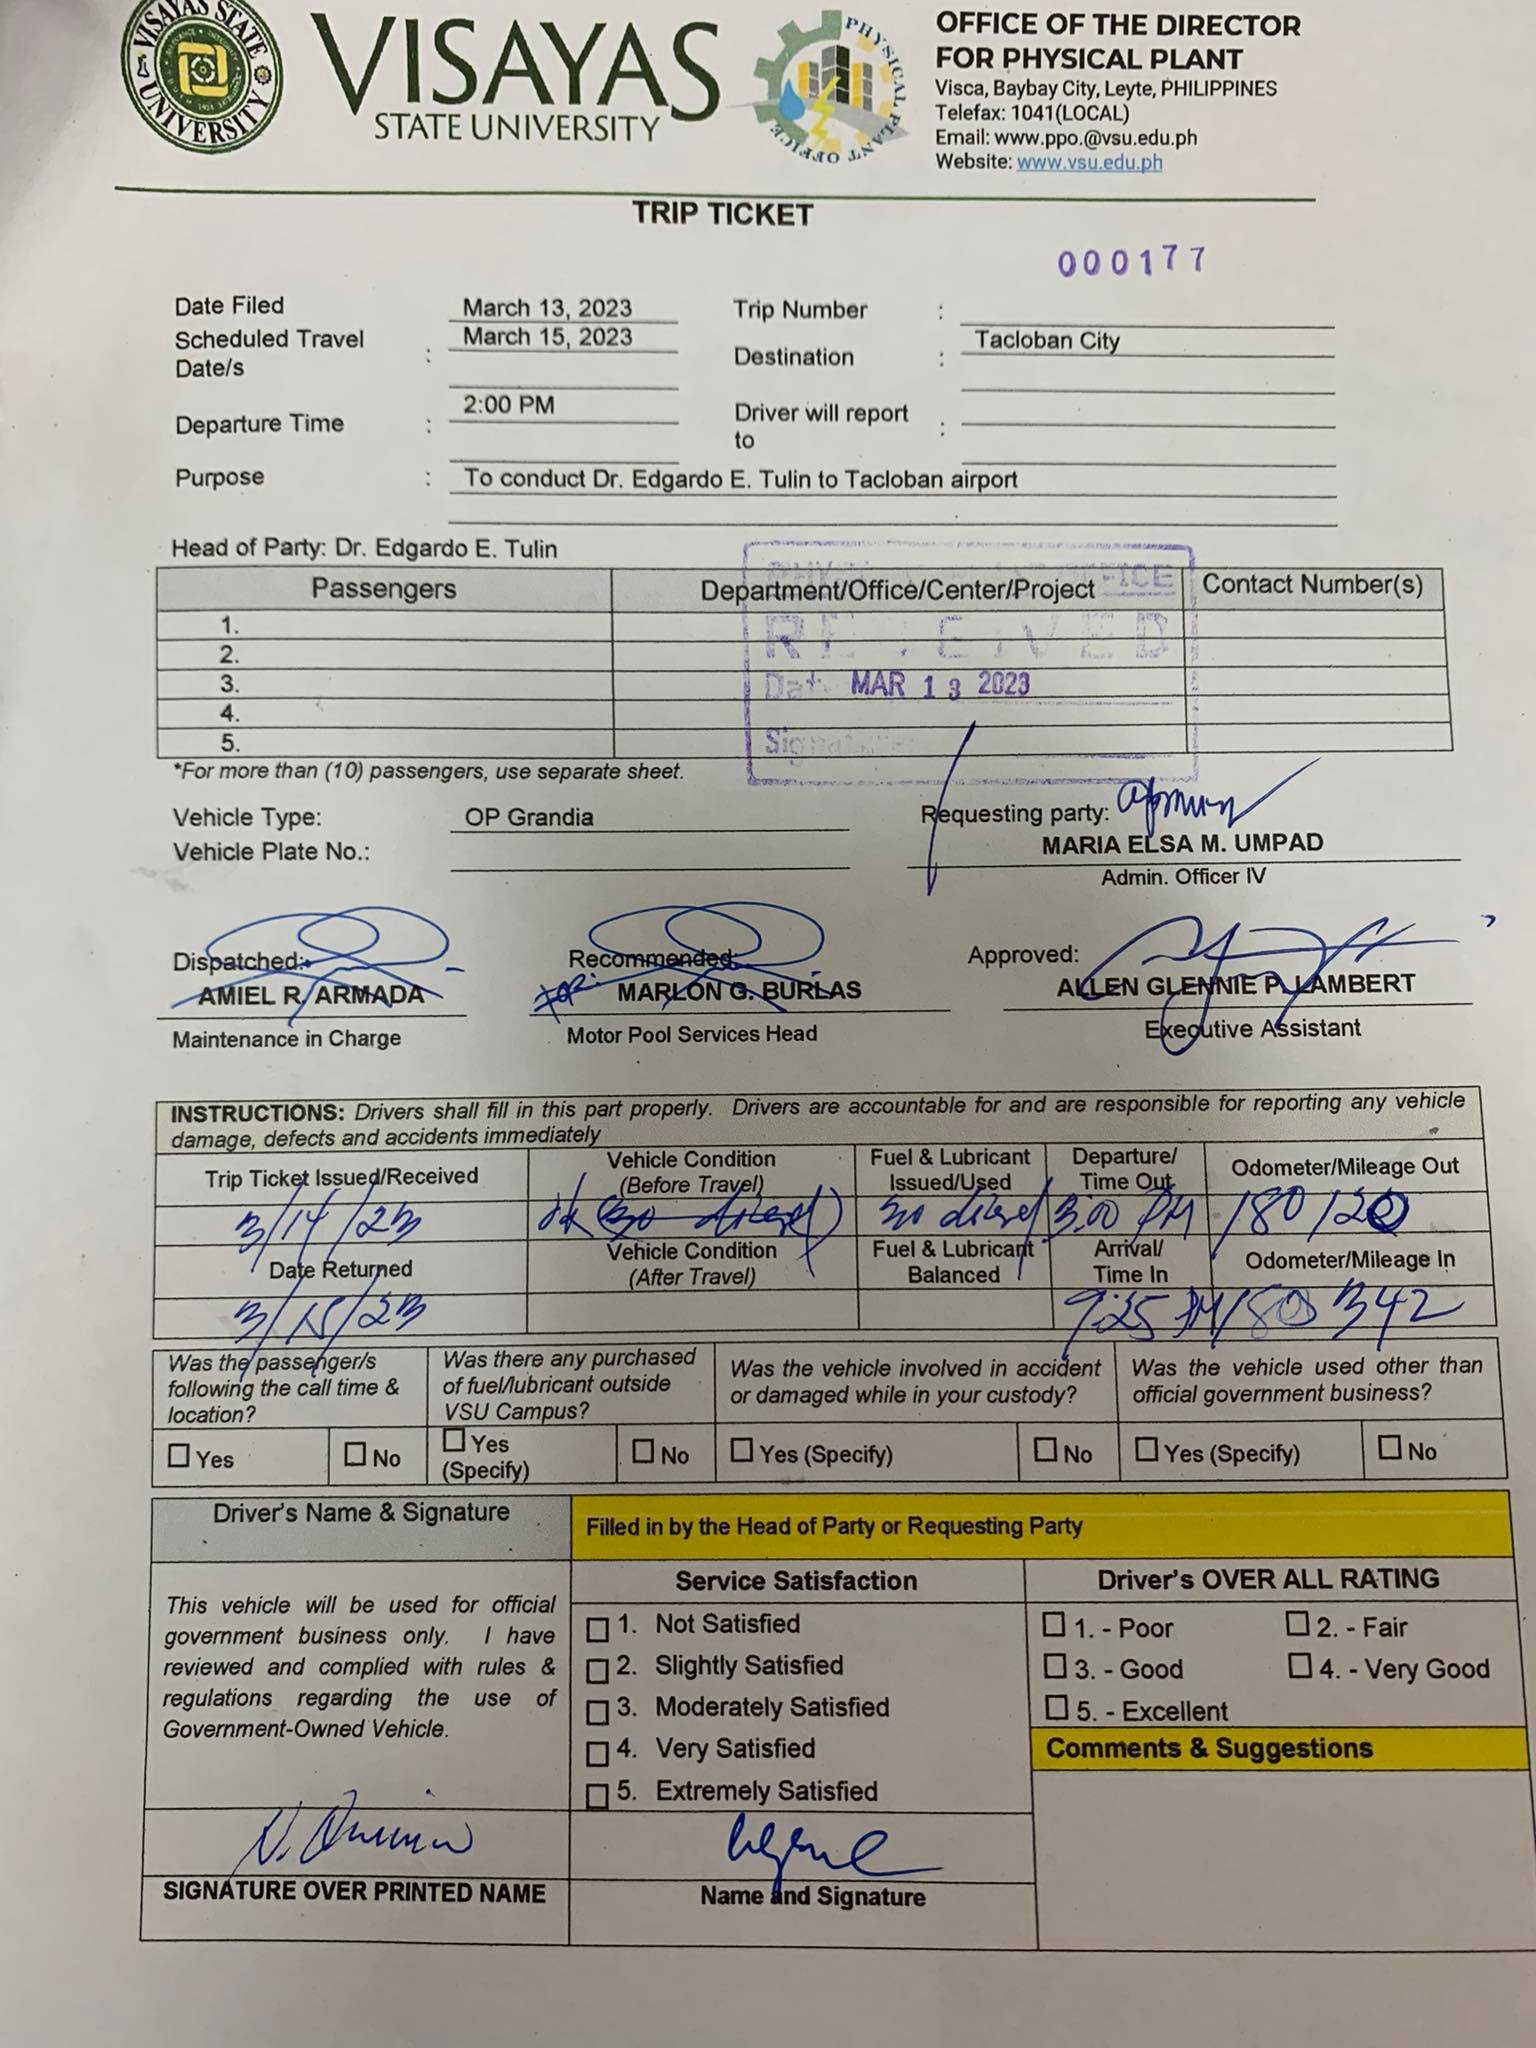 VISAYAS STATE UNIVERSITY
VISAYAS
STATE UNIVERSITY
PHYSICAL PLANT OFFICE
OFFICE OF THE DIRECTOR
FOR PHYSICAL PLANT
Visca, Baybay City, Leyte, PHILIPPINES
Telefax: 1041(LOCAL)
Email: www.ppo.@vsu.edu.ph
Website: www.vsu.edu.ph
TRIP TICKET
000177
Date Filed March 13, 2023 Trip Number :
Scheduled Travel Date/s : March 15, 2023 Destination : Tacloban City
Departure Time : 2:00 PM Driver will report to :
Purpose : To conduct Dr. Edgardo E. Tulin to Tacloban airport
Head of Party: Dr. Edgardo E. Tulin
Passengers Department/Office/Center/Project Contact Number(s)
1.
2.
3.
4.
5.
PHYSICAL PLANT OFFICE
RECEIVED
Date MAR 13 2023
Signature:
*For more than (10) passengers, use separate sheet.
Vehicle Type: OP Grandia
Vehicle Plate No.:
Requesting party:
MARIA ELSA M. UMPAD
Admin. Officer IV
Dispatched: Recommended: Approved:
AMIEL R. ARMADA for: MARLON G. BURLAS ALLEN GLENNIE P. LAMBERT
Maintenance in Charge Motor Pool Services Head Executive Assistant
INSTRUCTIONS: Drivers shall fill in this part properly. Drivers are accountable for and are responsible for reporting any vehicle
damage, defects and accidents immediately
Trip Ticket Issued/Received Vehicle Condition (Before Travel) Fuel & Lubricant Issued/Used Departure/ Time Out Odometer/Mileage Out
3/14/23 ok (30 diesel) 30 diesel 3:00 PM 180120
Date Returned Vehicle Condition (After Travel) Fuel & Lubricant Balanced Arrival/ Time In Odometer/Mileage In
3/15/23 9:25 PM 180342
Was the passenger/s following the call time & location? Was there any purchased of fuel/lubricant outside VSU Campus? Was the vehicle involved in accident or damaged while in your custody? Was the vehicle used other than official government business?
Yes No Yes (Specify) No Yes (Specify) No Yes (Specify) No
Driver's Name & Signature
Filled in by the Head of Party or Requesting Party
This vehicle will be used for official
government business only. I have
reviewed and complied with rules &
regulations regarding the use of
Government-Owned Vehicle.
Service Satisfaction
1. Not Satisfied
2. Slightly Satisfied
3. Moderately Satisfied
4. Very Satisfied
5. Extremely Satisfied
Driver's OVER ALL RATING
1. - Poor 2. - Fair
3. - Good 4. - Very Good
5. - Excellent
Comments & Suggestions
SIGNATURE OVER PRINTED NAME
Name and Signature